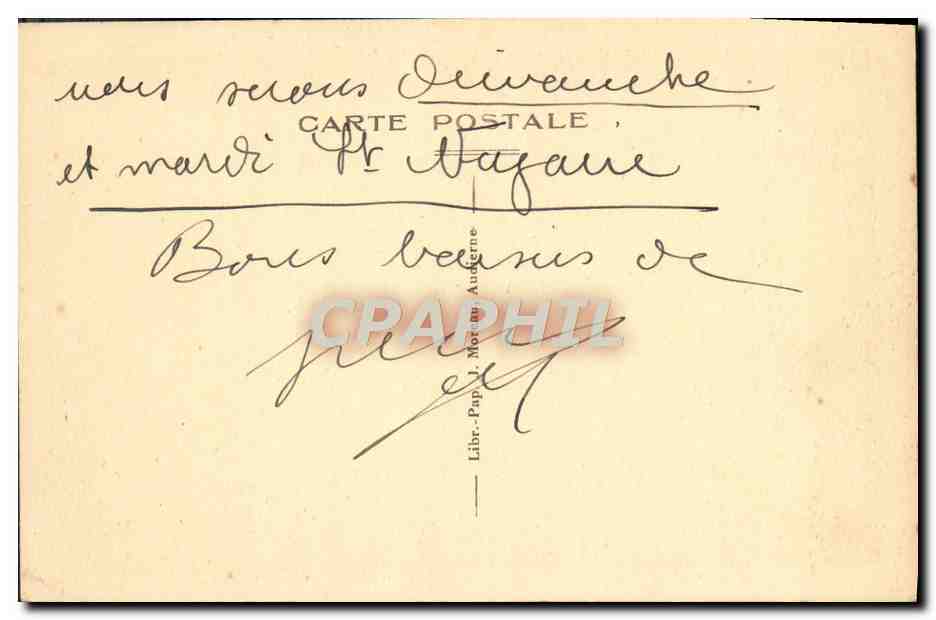 nous serons Dimanche
CARTE POSTALE
et mardi St Nazaire
Bons baisers de
CPAPHIL
Libr.-Pap. J. Moreau, Audierne